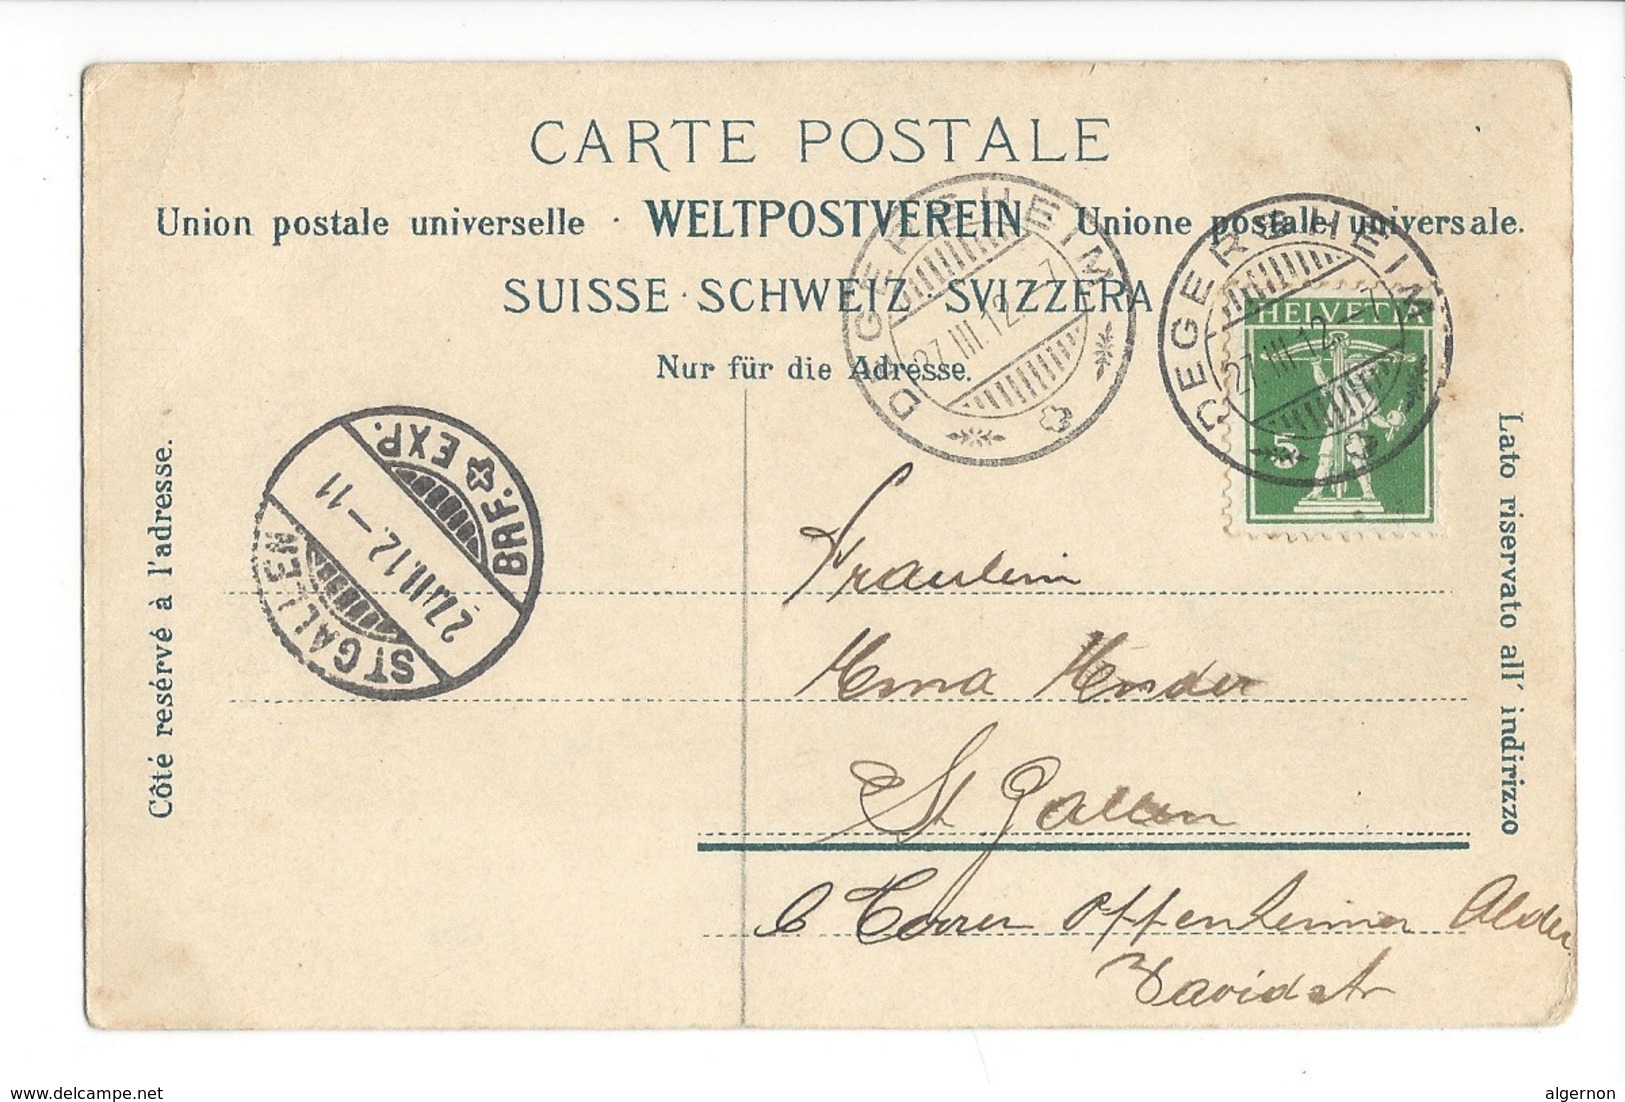 CARTE POSTALE
Union postale universelle · WELTPOSTVEREIN Unione postale universale.
SUISSE · SCHWEIZ SVIZZERA
Nur für die Adresse.
DEGERSHEIM
27.III.12.–7
DEGERSHEIM
27.III.12.–7
HELVETIA
5
Côté resérvé à l'adresse.
Lato riservato all' indirizzo
BRF. EXP.
27.III.12.–11
ST GALLEN
Fraulein
St Gallen
Oppenheimer Alder
Davidstr
delcampe.net
algernon